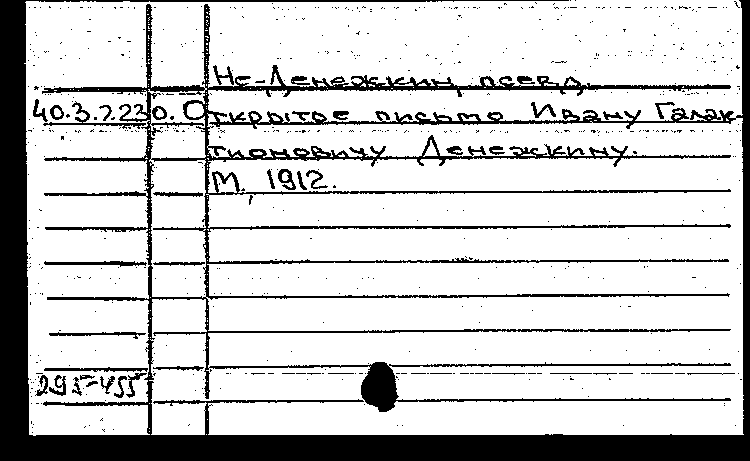 Не-Денежкин, псевд.
40.3.2.230. Открытое письмо Ивану Галак-
тионовичу Денежкину.
М., 1912.
295-455